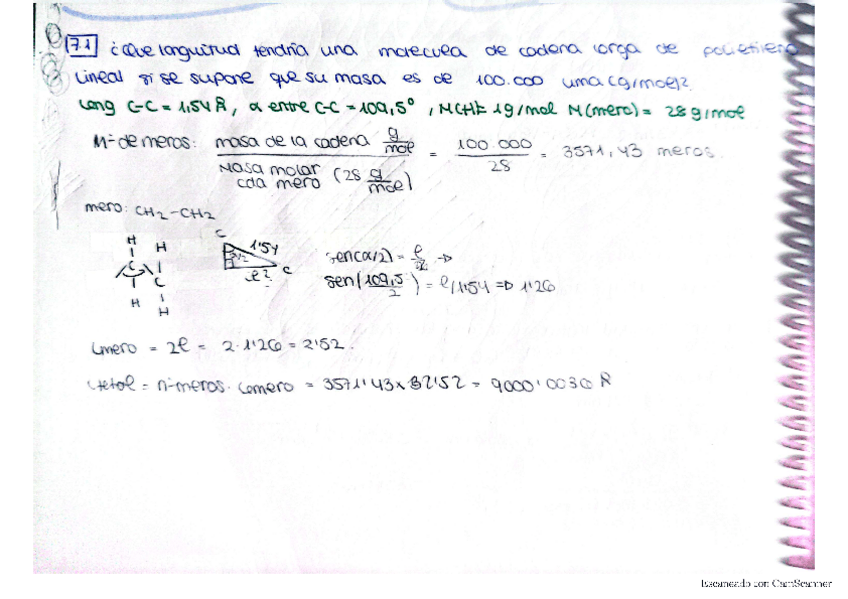 7.1 ¿Que longuitud tendría una molecula de cadena larga de polietileno
lineal si se supone que su masa es de 100.000 uma (g/mol)?
Long C-C = 1,54 Å, α entre C-C = 109,5°, M(H)= 1g/mol M(mero) = 28 g/mol
Nº de meros: masa de la cadena g/mol / Masa molar cda mero (28 g/mol) = 100.000 / 28 = 3571,43 meros.
mero: CH2-CH2
H H
C C
H H
C 1'54 α/2 l? C
sen(α/2) = l/
sen(109,5/2) = l/1'54 => 1'26
Lmero = 2l = 2·1'26 = 2'52.
Ltotal = nº meros · Lmero = 3571'43 x 2'52 = 9000'0036 Å
Escaneado con CamScanner